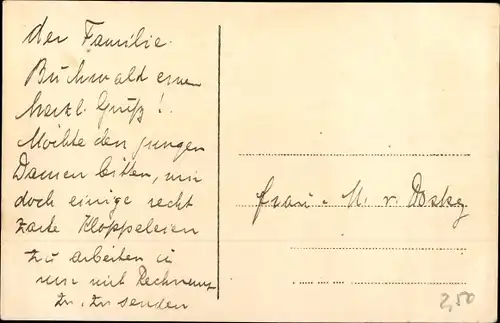 der Familie
Buchwald einen
herzl. Gruß!
Möchte den jungen
Damen bitten, mir
doch einige recht
zarte Klöppeleien
zu arbeiten u
mir mit Rechnung
zu, zu senden
Frau M. v.
2,50